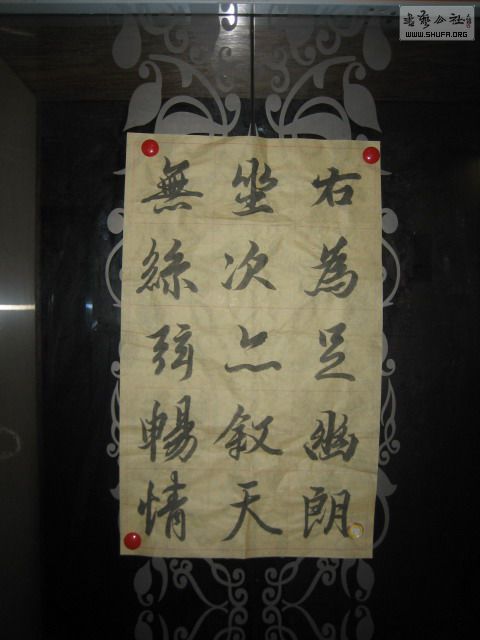 右為足幽朗
坐次亦叙天
無絲弦暢情
書藝公社
WWW.SHUFA.ORG